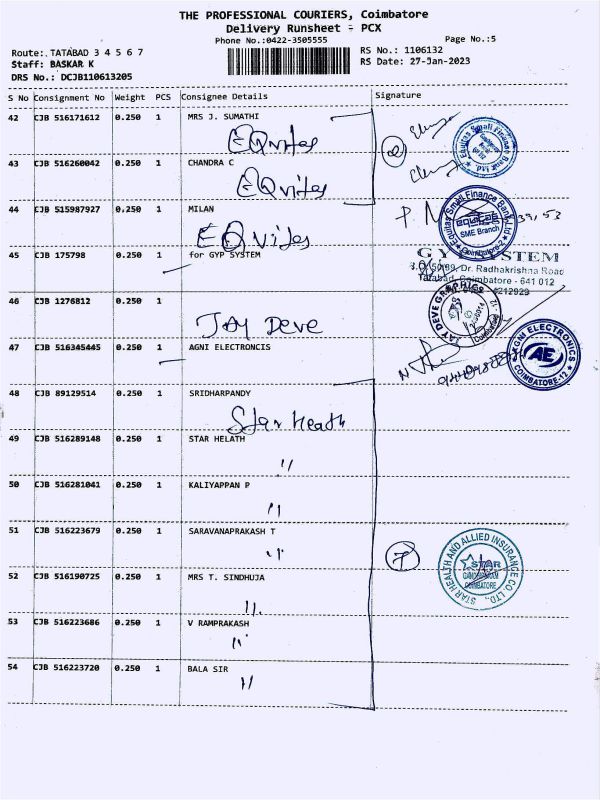 THE PROFESSIONAL COURIERS, Coimbatore
Delivery Runsheet - PCX
Phone No.:0422-3505555
Page No.:5
Route: TATABAD 3 4 5 6 7
RS No.: 1106132
Staff: BASKAR K
RS Date: 27-Jan-2023
DRS No.: DCJB110613205
S No Consignment No Weight PCS Consignee Details Signature
42 CJB 516171612 0.250 1 MRS J. SUMATHI
EQuitas
(2)
Equitas Small Finance Bank Ltd.
43 CJB 516260042 0.250 1 CHANDRA C
EQuitas
44 CJB 515987927 0.250 1 MILAN
EQuitas
Equitas Small Finance Bank Ltd
equitas
SME Branch
Coimbatore-2
45 CJB 175798 0.250 1 for GYP SYSTEM
GYP SYSTEM
Dr. Radhakrishna Road
Tatabad, Coimbatore - 641 012
4212929
46 CJB 1276812 0.250 1
JAY DEVE
JAY DEVE GRAPHICS
Coimbatore
47 CJB 516345445 0.250 1 AGNI ELECTRONCIS
AGNI ELECTRONICS
AE
COIMBATORE-12
48 CJB 89129514 0.250 1 SRIDHARPANDY
Star Heath
49 CJB 516289148 0.250 1 STAR HELATH
"
50 CJB 516281041 0.250 1 KALIYAPPAN P
"
51 CJB 516223679 0.250 1 SARAVANAPRAKASH T
"
(7)
STAR HEALTH AND ALLIED INSURANCE CO. LTD.,
STAR
COIMBATORE
52 CJB 516190725 0.250 1 MRS T. SINDHUJA
"
53 CJB 516223686 0.250 1 V RAMPRAKASH
"
54 CJB 516223720 0.250 1 BALA SIR
"